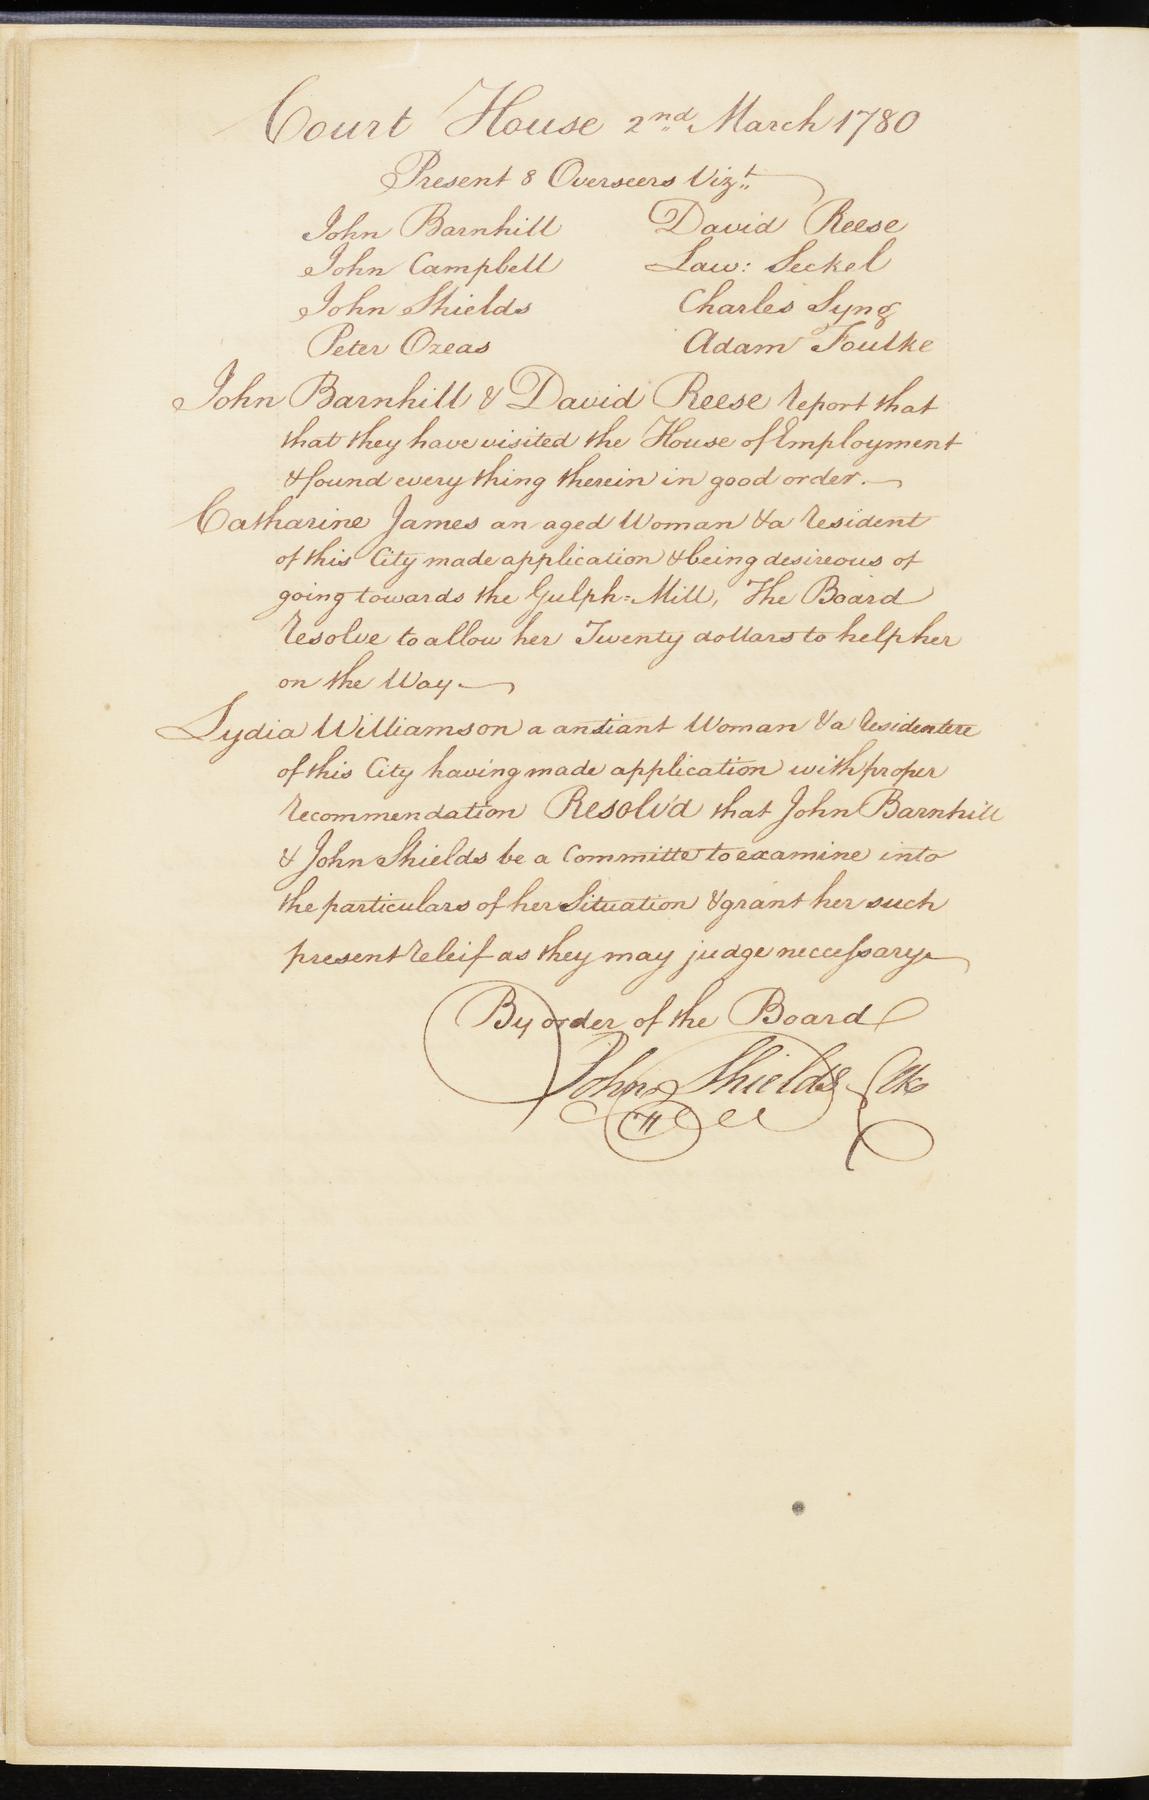 Court House 2nd March 1780
Present 8 Overseers Vizt
John Barnhill David Reese
John Campbell Law: Seckel
John Shields Charles Syng
Peter Ozeas Adam Foulke
John Barnhill & David Reese report that
that they have visited the House of Employment
& found every thing therein in good order.
Catharine James an aged Woman & a resident
of this City made application & being desireous of
going towards the Gulph=Mill, The Board
resolve to allow her Twenty dollars to help her
on the Way
Lydia Williamson a antiant Woman & a residentere
of this City having made application with proper
recommendation Resolv'd that John Barnhill
& John Shields be a Committe to examine into
the particulars of her Situation & grant her such
present releif as they may judge neccessary
By order of the Board
John Shields Clk